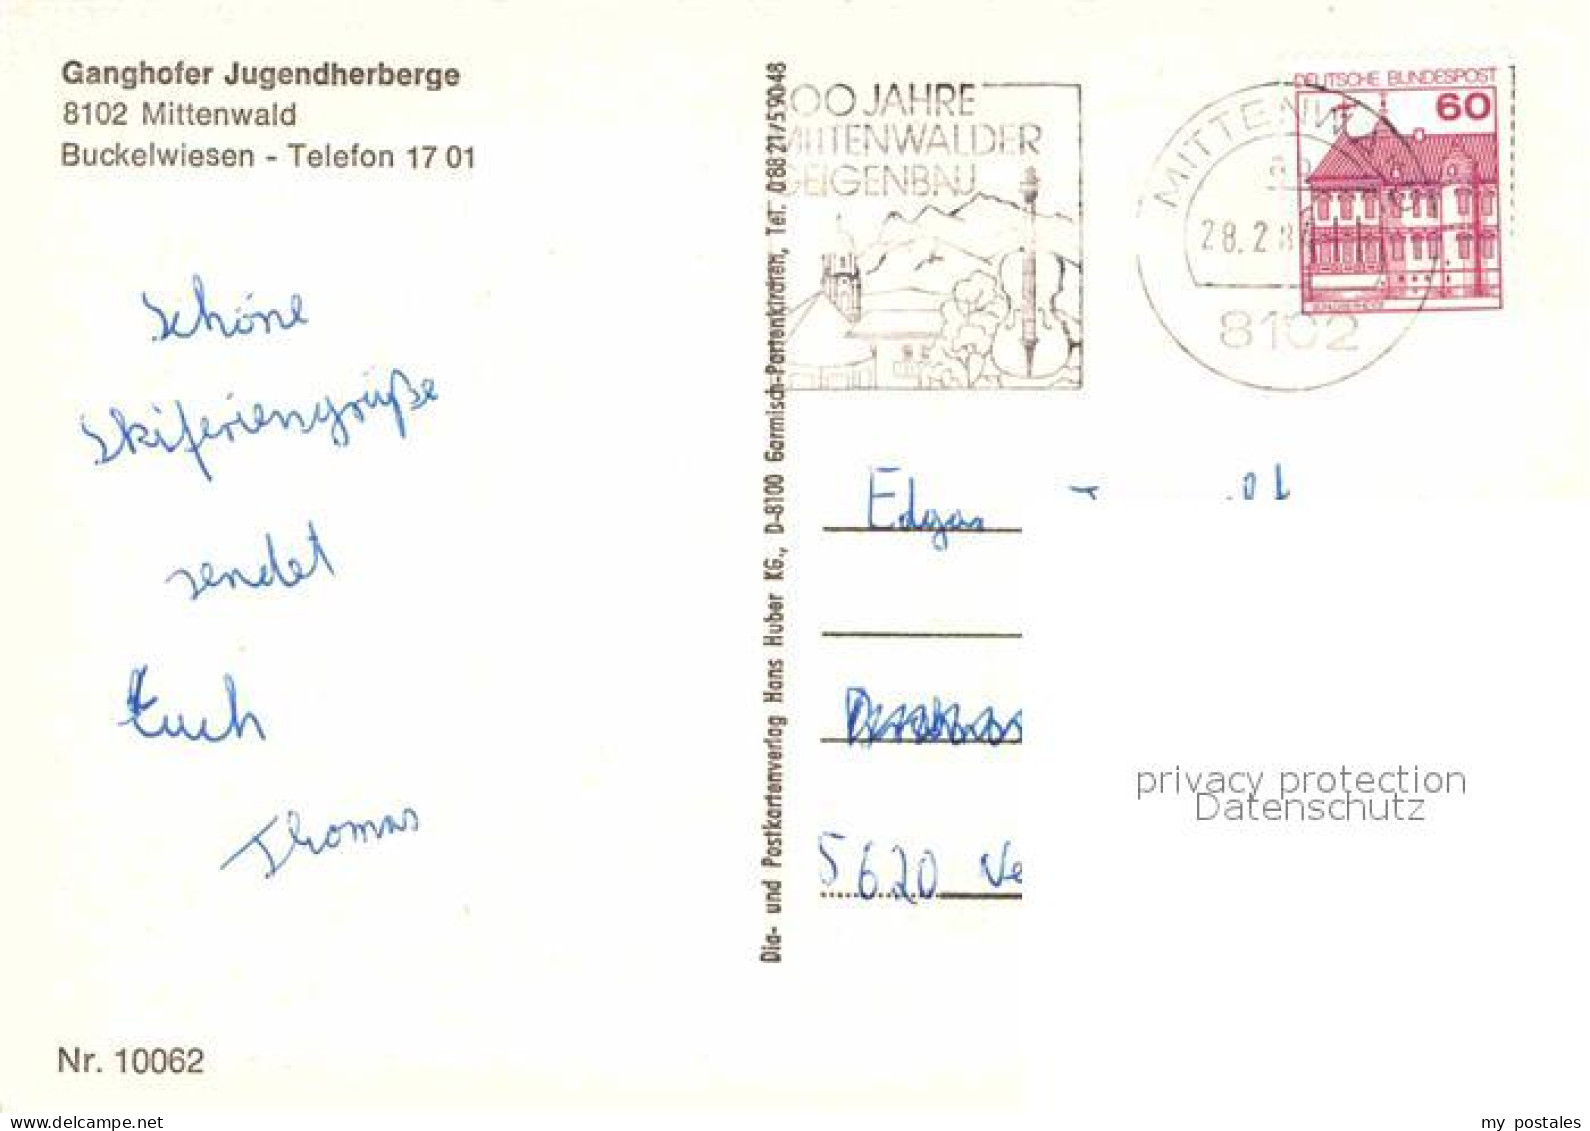 Ganghofer Jugendherberge
8102 Mittenwald
Buckelwiesen - Telefon 17 01
Schöne
Skiferiengrüße
sendet
Euch
Thomas
Nr. 10062
Dia- und Postkartenverlag Hans Huber KG., D-8100 Garmisch-Partenkirchen, Tel. 0 88 21 / 5 90 48
00 JAHRE
MITTENWALDER
GEIGENBAU
MITTENW
28.2.8
8102
DEUTSCHE BUNDESPOST
60
Edgar
5620 Ve
privacy protection
Datenschutz
my postales